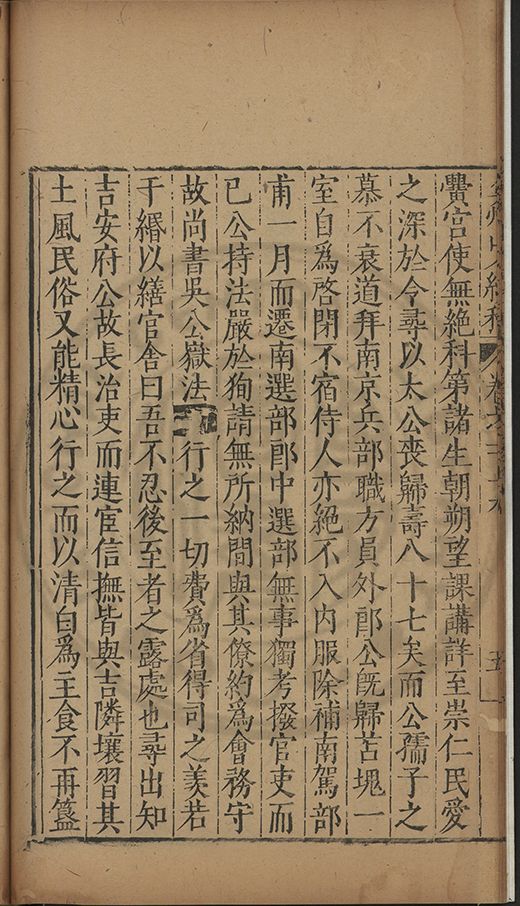 黌宮使無絶科第諸生朝朔望課講詳至崇仁民愛
之深於今尋以太公喪歸壽八十七矣而公孺子之
慕不衰道拜南京兵部職方員外郎公旣歸苫塊一
室自爲啓閉不宿侍人亦絕不入內服除補南駕部
甫一月而遷南選部郎中選部無事獨考撥官吏而
已公持法嚴於狥請無所納間與其僚約爲會務守
故尚書吳公嶽法 行之一切費爲省得司之羨若
干緡以繕官舍曰吾不忍後至者之露處也尋出知
吉安府公故長治吏而連宦信撫皆與吉隣壤習其
土風民俗又能精心行之而以清白爲主食不再簋